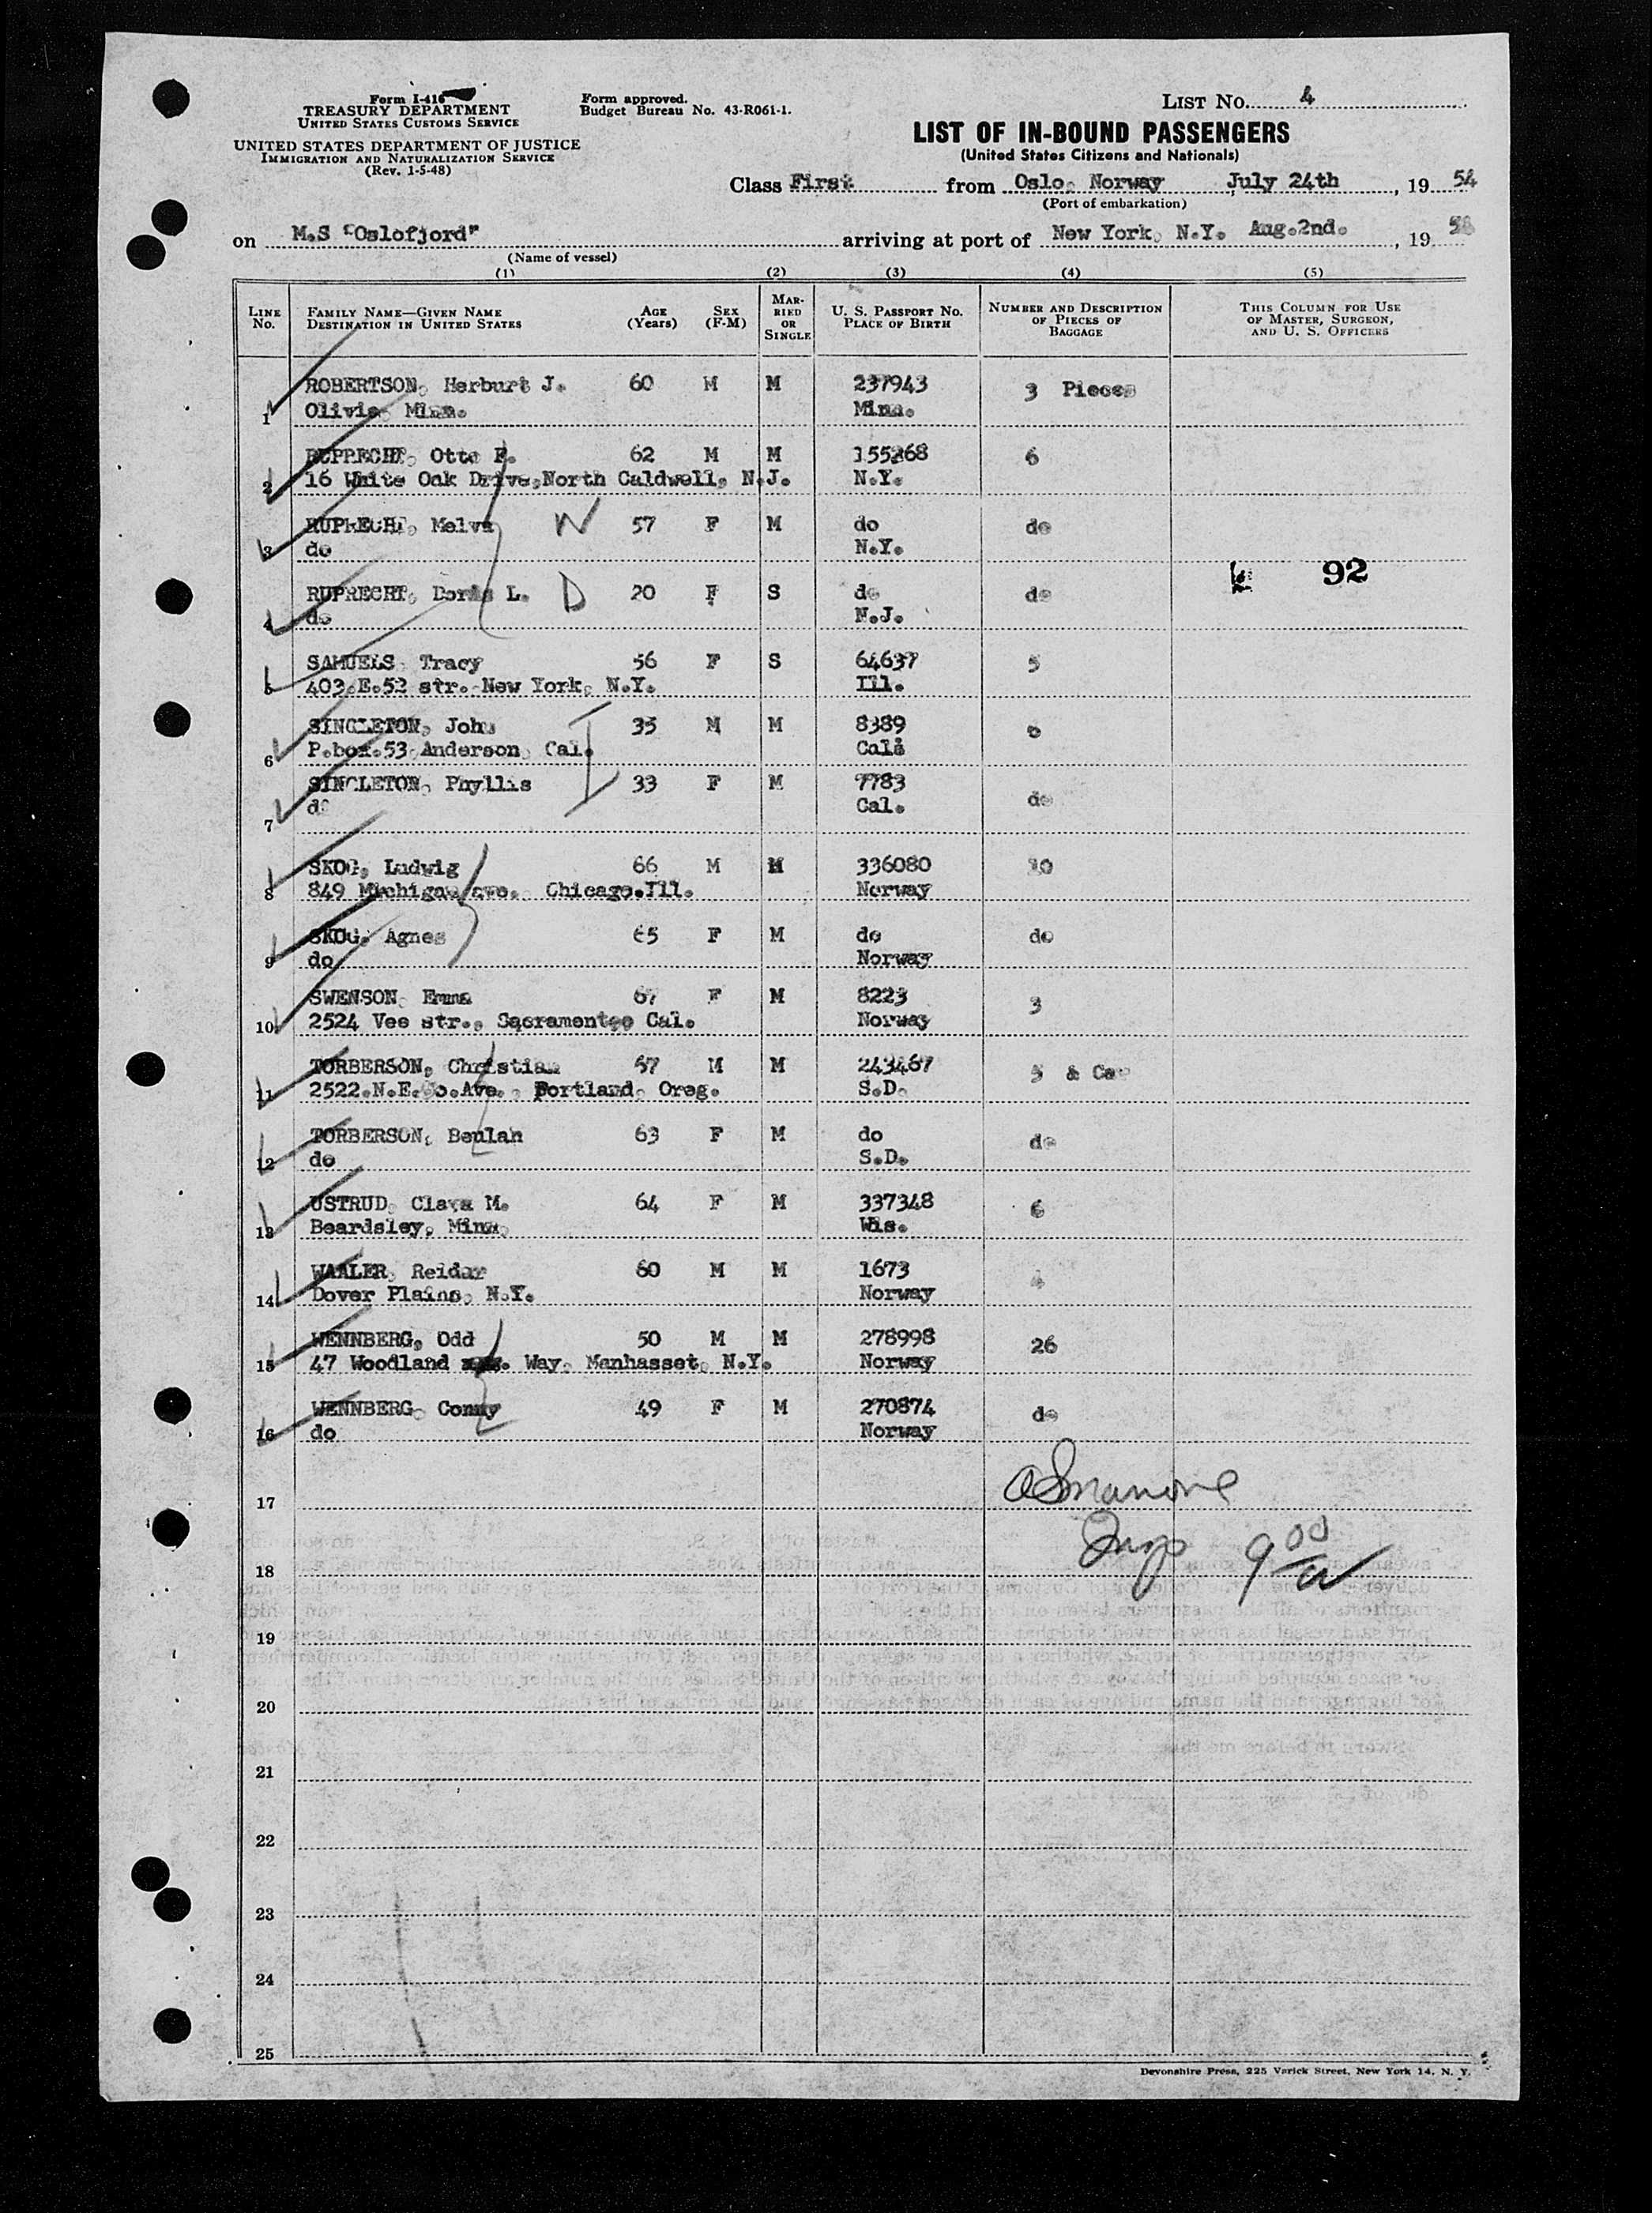 Form I-416
TREASURY DEPARTMENT
UNITED STATES CUSTOMS SERVICE
UNITED STATES DEPARTMENT OF JUSTICE
IMMIGRATION AND NATURALIZATION SERVICE
(Rev. 1-5-48)
Form approved.
Budget Bureau No. 43-R061-1.
LIST NO. 4
LIST OF IN-BOUND PASSENGERS
(United States Citizens and Nationals)
Class First from Oslo, Norway July 24th , 19 54
(Port of embarkation)
on M.S "Oslofjord" arriving at port of New York, N.Y. Aug.2nd. , 19
(Name of vessel)
(1) (2) (3) (4) (5)
LINE No. FAMILY NAME—GIVEN NAME DESTINATION IN UNITED STATES AGE (Years) SEX (F-M) MARRIED OR SINGLE U. S. PASSPORT No. PLACE OF BIRTH NUMBER AND DESCRIPTION OF PIECES OF BAGGAGE THIS COLUMN FOR USE OF MASTER, SURGEON, AND U. S. OFFICERS
ROBERTSON, Herburt J. 60 M M 237943 3 Pieces
1 Olivia, Minn. Minn.
RUPPRECHT, Otto F. 62 M M 155268 6
2 16 White Oak Drive, North Caldwell, N.J. N.Y.
RUPRECHT, Melva W 57 F M do do
3 do N.Y.
92
RUPRECHT, Doris L. D 20 F S do do
4 do N.J.
SAMUELS, Tracy 56 F S 64637 5
5 403.E.52 str. New York, N.Y. Ill.
SINGLETON, John 35 M M 8389
6 P.box.53 Anderson, Cal. Cal.
SINGLETON, Phyllis 33 F M 7783 do
7 do Cal.
SKOG, Ludwig 66 M M 336080 10
8 849 Michigan ave. Chicago.Ill. Norway
SKOG, Agnes 65 F M do do
9 do Norway
SWENSON, Emma 67 F M 8223 3
10 2524 Vee str., Sacramento, Cal. Norway
TORBERSON, Christian M M 243467 5 & Car
11 2522.N.E. Ave. Portland, Oreg. S.D.
TORBERSON, Beulah 63 F M do do
12 do S.D.
USTRUD, Clara M. 64 F M 337348 6
13 Beardsley, Minn. Wis.
WAALER, Reidar 60 M M 1673
14 Dover Plains, N.Y. Norway
WENNBERG, Odd 50 M M 278998 26
15 47 Woodland Way, Manhasset, N.Y. Norway
WENNBERG, Conny 49 F M 270874 do
16 do Norway
17
Insp 9 00
18
19
20
21
22
23
24
25
Devonshire Press, 225 Varick Street, New York 14, N. Y.